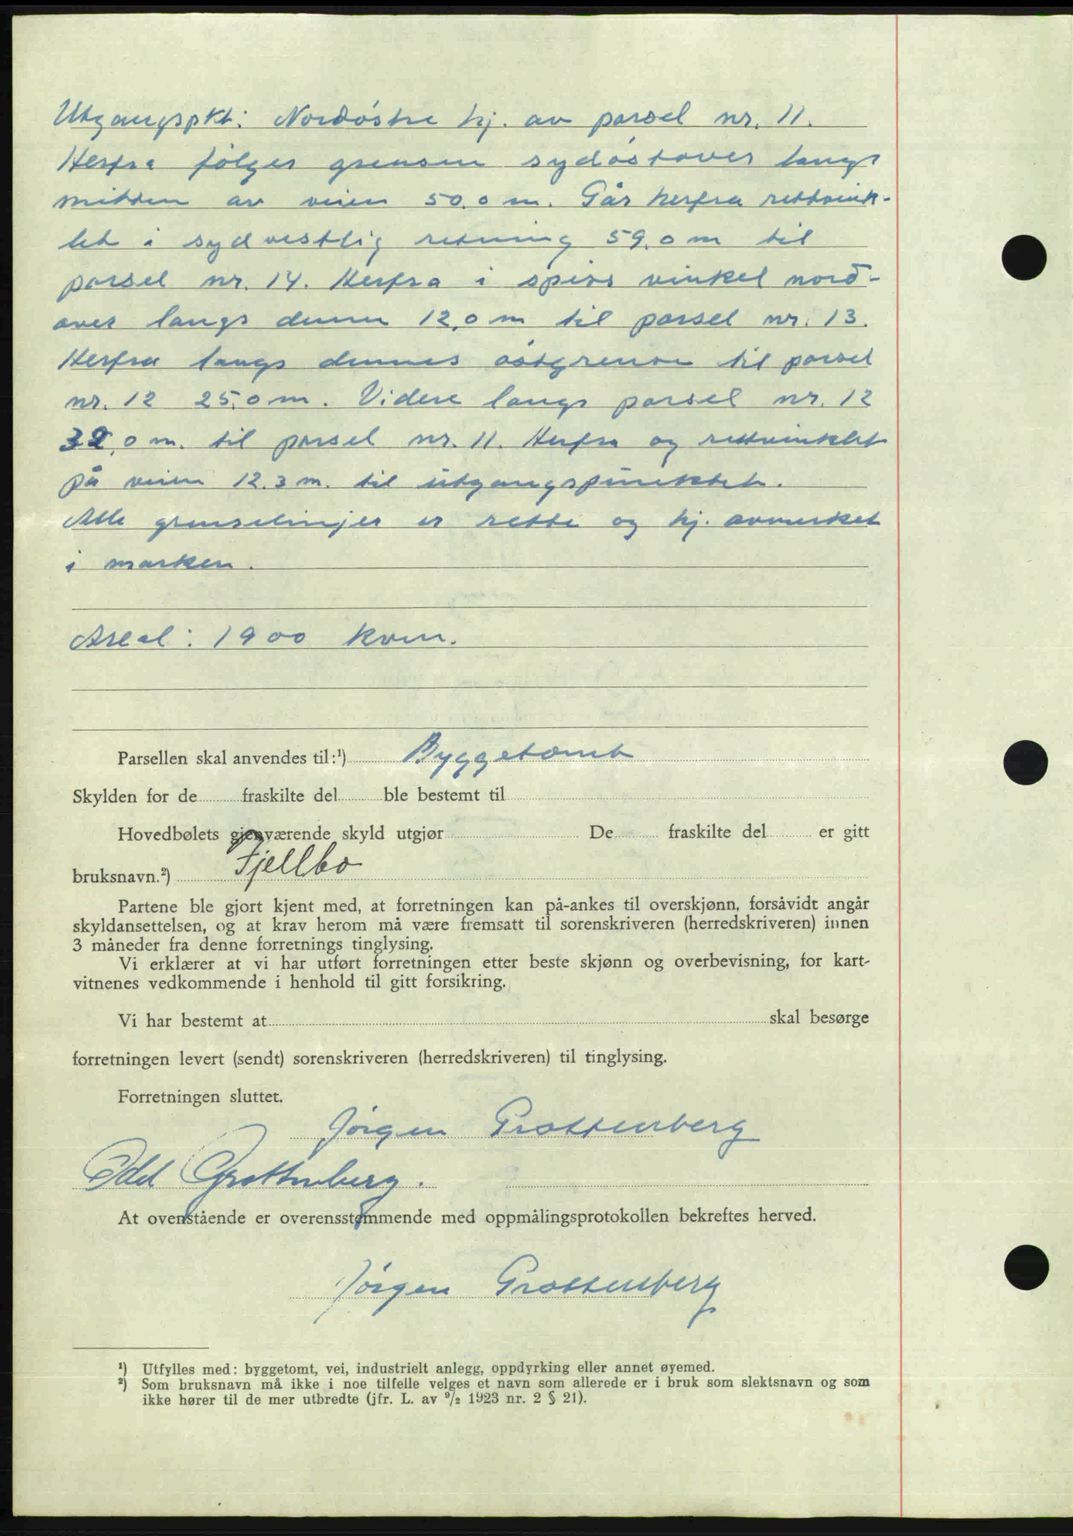 Utgangspkt: Nordöstre hj. av parsel nr. 11.
Herfra følger grensen sydöstover langs
mitten av veien 50,0 m. Går herfra rettvink-
let i sydvestlig retning 59,0 m til
parsel nr. 14. Herfra i spiss vinkel nord-
over langs denne 12,0 m til parsel nr. 13.
Herfra langs dennes östgrense til parsel
nr. 12 25,0 m. Videre langs parsel nr. 12
32,0 m. til parsel nr. 11. Herfra og rettvinklet
på veien 12.3 m. til utgangspunktet.
Alle grenselinjer er rette og hj. avmerket
i marken.
Areal: 1900 kvm.
Parsellen skal anvendes til:¹) Byggetomt
Skylden for de fraskilte del ble bestemt til
Hovedbølets gjenværende skyld utgjør De fraskilte del er gitt
bruksnavn.²) Fjellbo
Partene ble gjort kjent med, at forretningen kan på-ankes til overskjønn, forsåvidt angår
skyldansettelsen, og at krav herom må være fremsatt til sorenskriveren (herredskriveren) innen
3 måneder fra denne forretnings tinglysing.
Vi erklærer at vi har utført forretningen etter beste skjønn og overbevisning, for kart-
vitnenes vedkommende i henhold til gitt forsikring.
Vi har bestemt at skal besørge
forretningen levert (sendt) sorenskriveren (herredskriveren) til tinglysing.
Forretningen sluttet.
Jörgen Grottenberg
Odd Grottenberg.
At ovenstående er overensstemmende med oppmålingsprotokollen bekreftes herved.
Jörgen Grottenberg
¹) Utfylles med: byggetomt, vei, industrielt anlegg, oppdyrking eller annet øyemed.
²) Som bruksnavn må ikke i noe tilfelle velges et navn som allerede er i bruk som slektsnavn og som
ikke hører til de mer utbredte (jfr. L. av ⁹/₂ 1923 nr. 2 § 21).